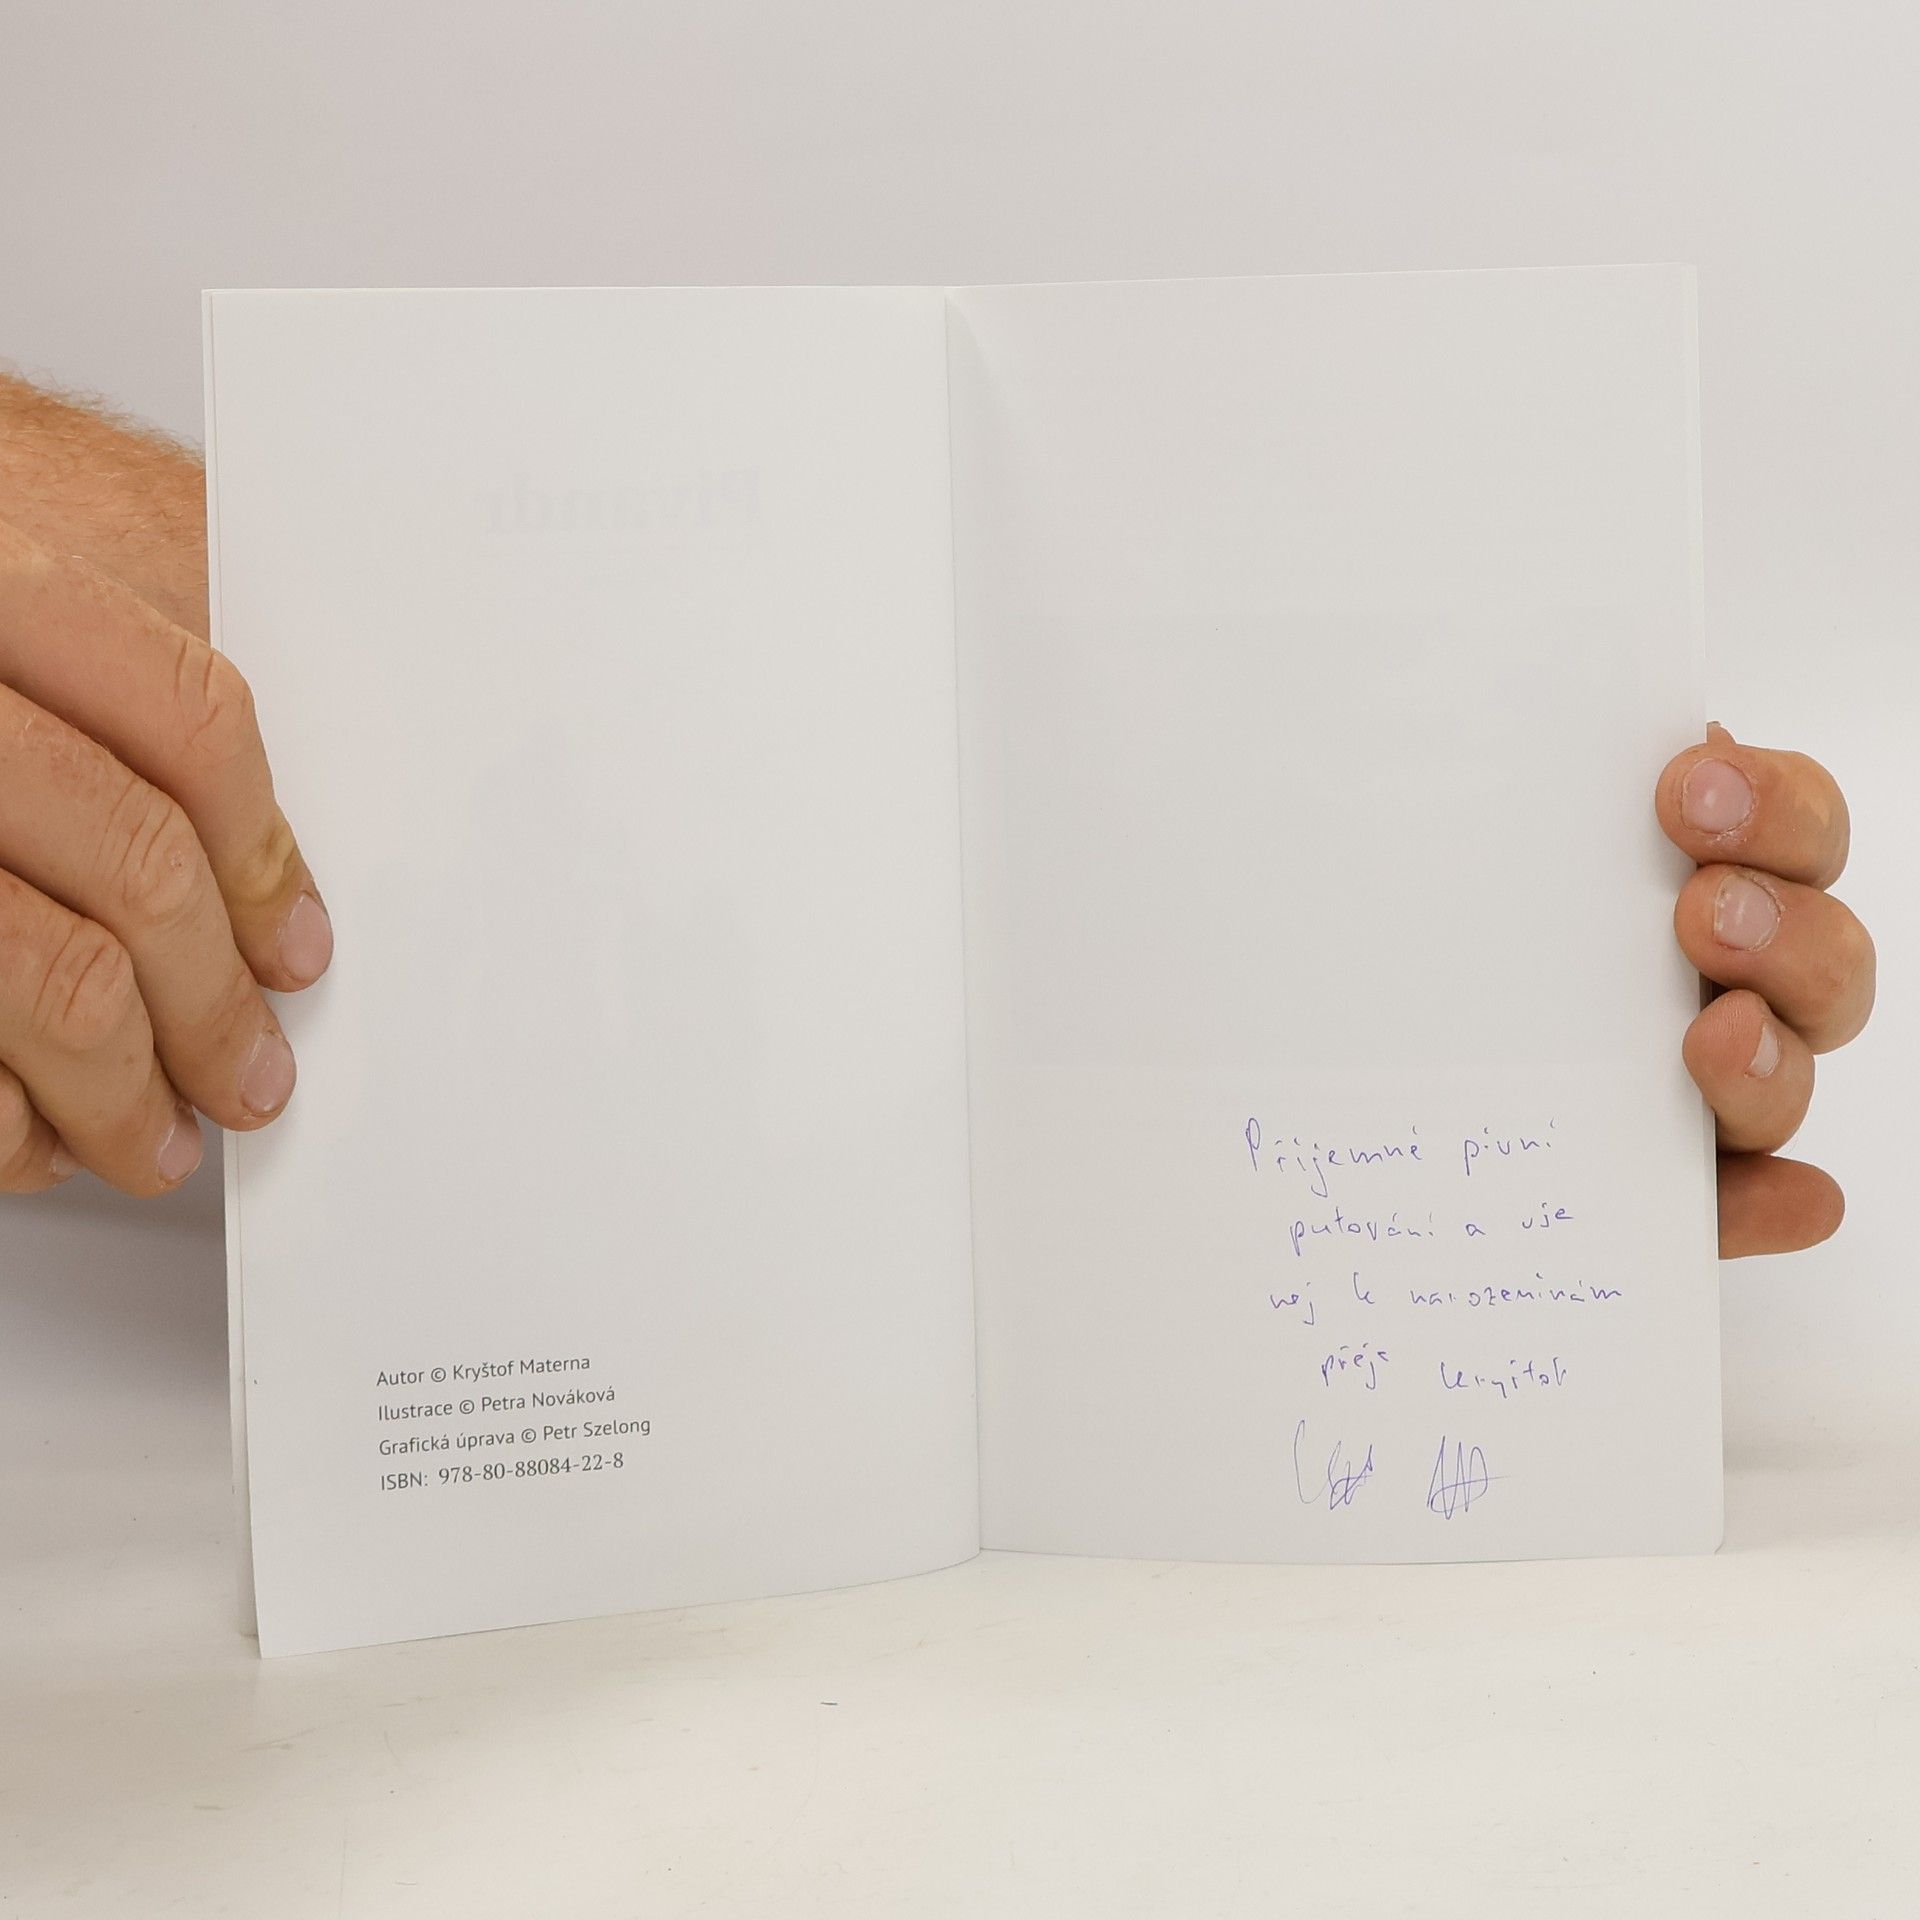 Autor © Kryštof Materna
Ilustrace © Petra Nováková
Grafická úprava © Petr Szelong
ISBN: 978-80-88084-22-8
Příjemné pivní
putování a vše
nej k narozeninám
přeje Kryštof